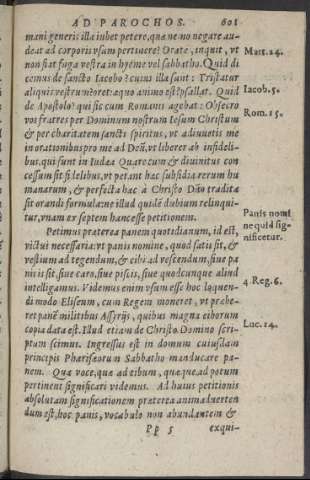 AD PAROCHOS. 601
mani generis: illa iubet petere, quæ ne mo negare au-
deat ad corporis vsum pertinere? Orate, inquit, vt
non fiat fuga vestra in hyeme vel sabbatho. Quid di
cemus de sancto Iacobo? cuius illa sunt: Tristatur
aliquis vestrum? oret: æquo animo est? psallat. Quid
de Apostolo? qui sic cum Romanis agebat: Obsecro
vos fratres per Dominum nostrum Iesum Christum
& per charitatem sancti spiritus, vt adiuuetis me
in orationibus pro me ad Deũ, vt liberer ab infideli-
bus, qui sunt in Iudæa Quare cum & diuinitus con
cessum sit fidelibus, vt petant hac subsidia rerum hu
manarum, & perfecta hac à Christo Dño tradita
sit orandi formula: ne illud quidẽ dubium relinqui-
tur, vnam ex septem hanc esse petitionem.
Petimus præterea panem quotidianum, id est,
victui necessaria: vt panis nomine, quod satis sit, &
vestium ad tegendum, & cibi ad vescendum, siue pa
nis is sit, siue caro, siue piscis, siue quodcunque aliud
intelligamus. Videmus enim vsum esse hoc loquen-
di modo Eliseum, cum Regem moneret, vt præbe-
ret panẽ militibus Assyrijs, quibus magna ciborum
copia data est. Illud etiam de Christo Domino scri-
ptum scimus. Ingressus est in domum cuiusdam
principis Pharisæorum Sabbatho manducare pa-
nem. Qua voce, quæ ad cibum, quæque ad potum
pertinent significari videmus. Ad huius petitionis
absolutam significationem præterea animaduerten
dum est, hoc panis, vocabulo non abundantem &
Pp 5 exqui-
Matt. 24.
Iacob. 5.
Rom. 15.
Panis nomi
ne quid sig-
nificetur.
4. Reg. 6.
Luc. 14.